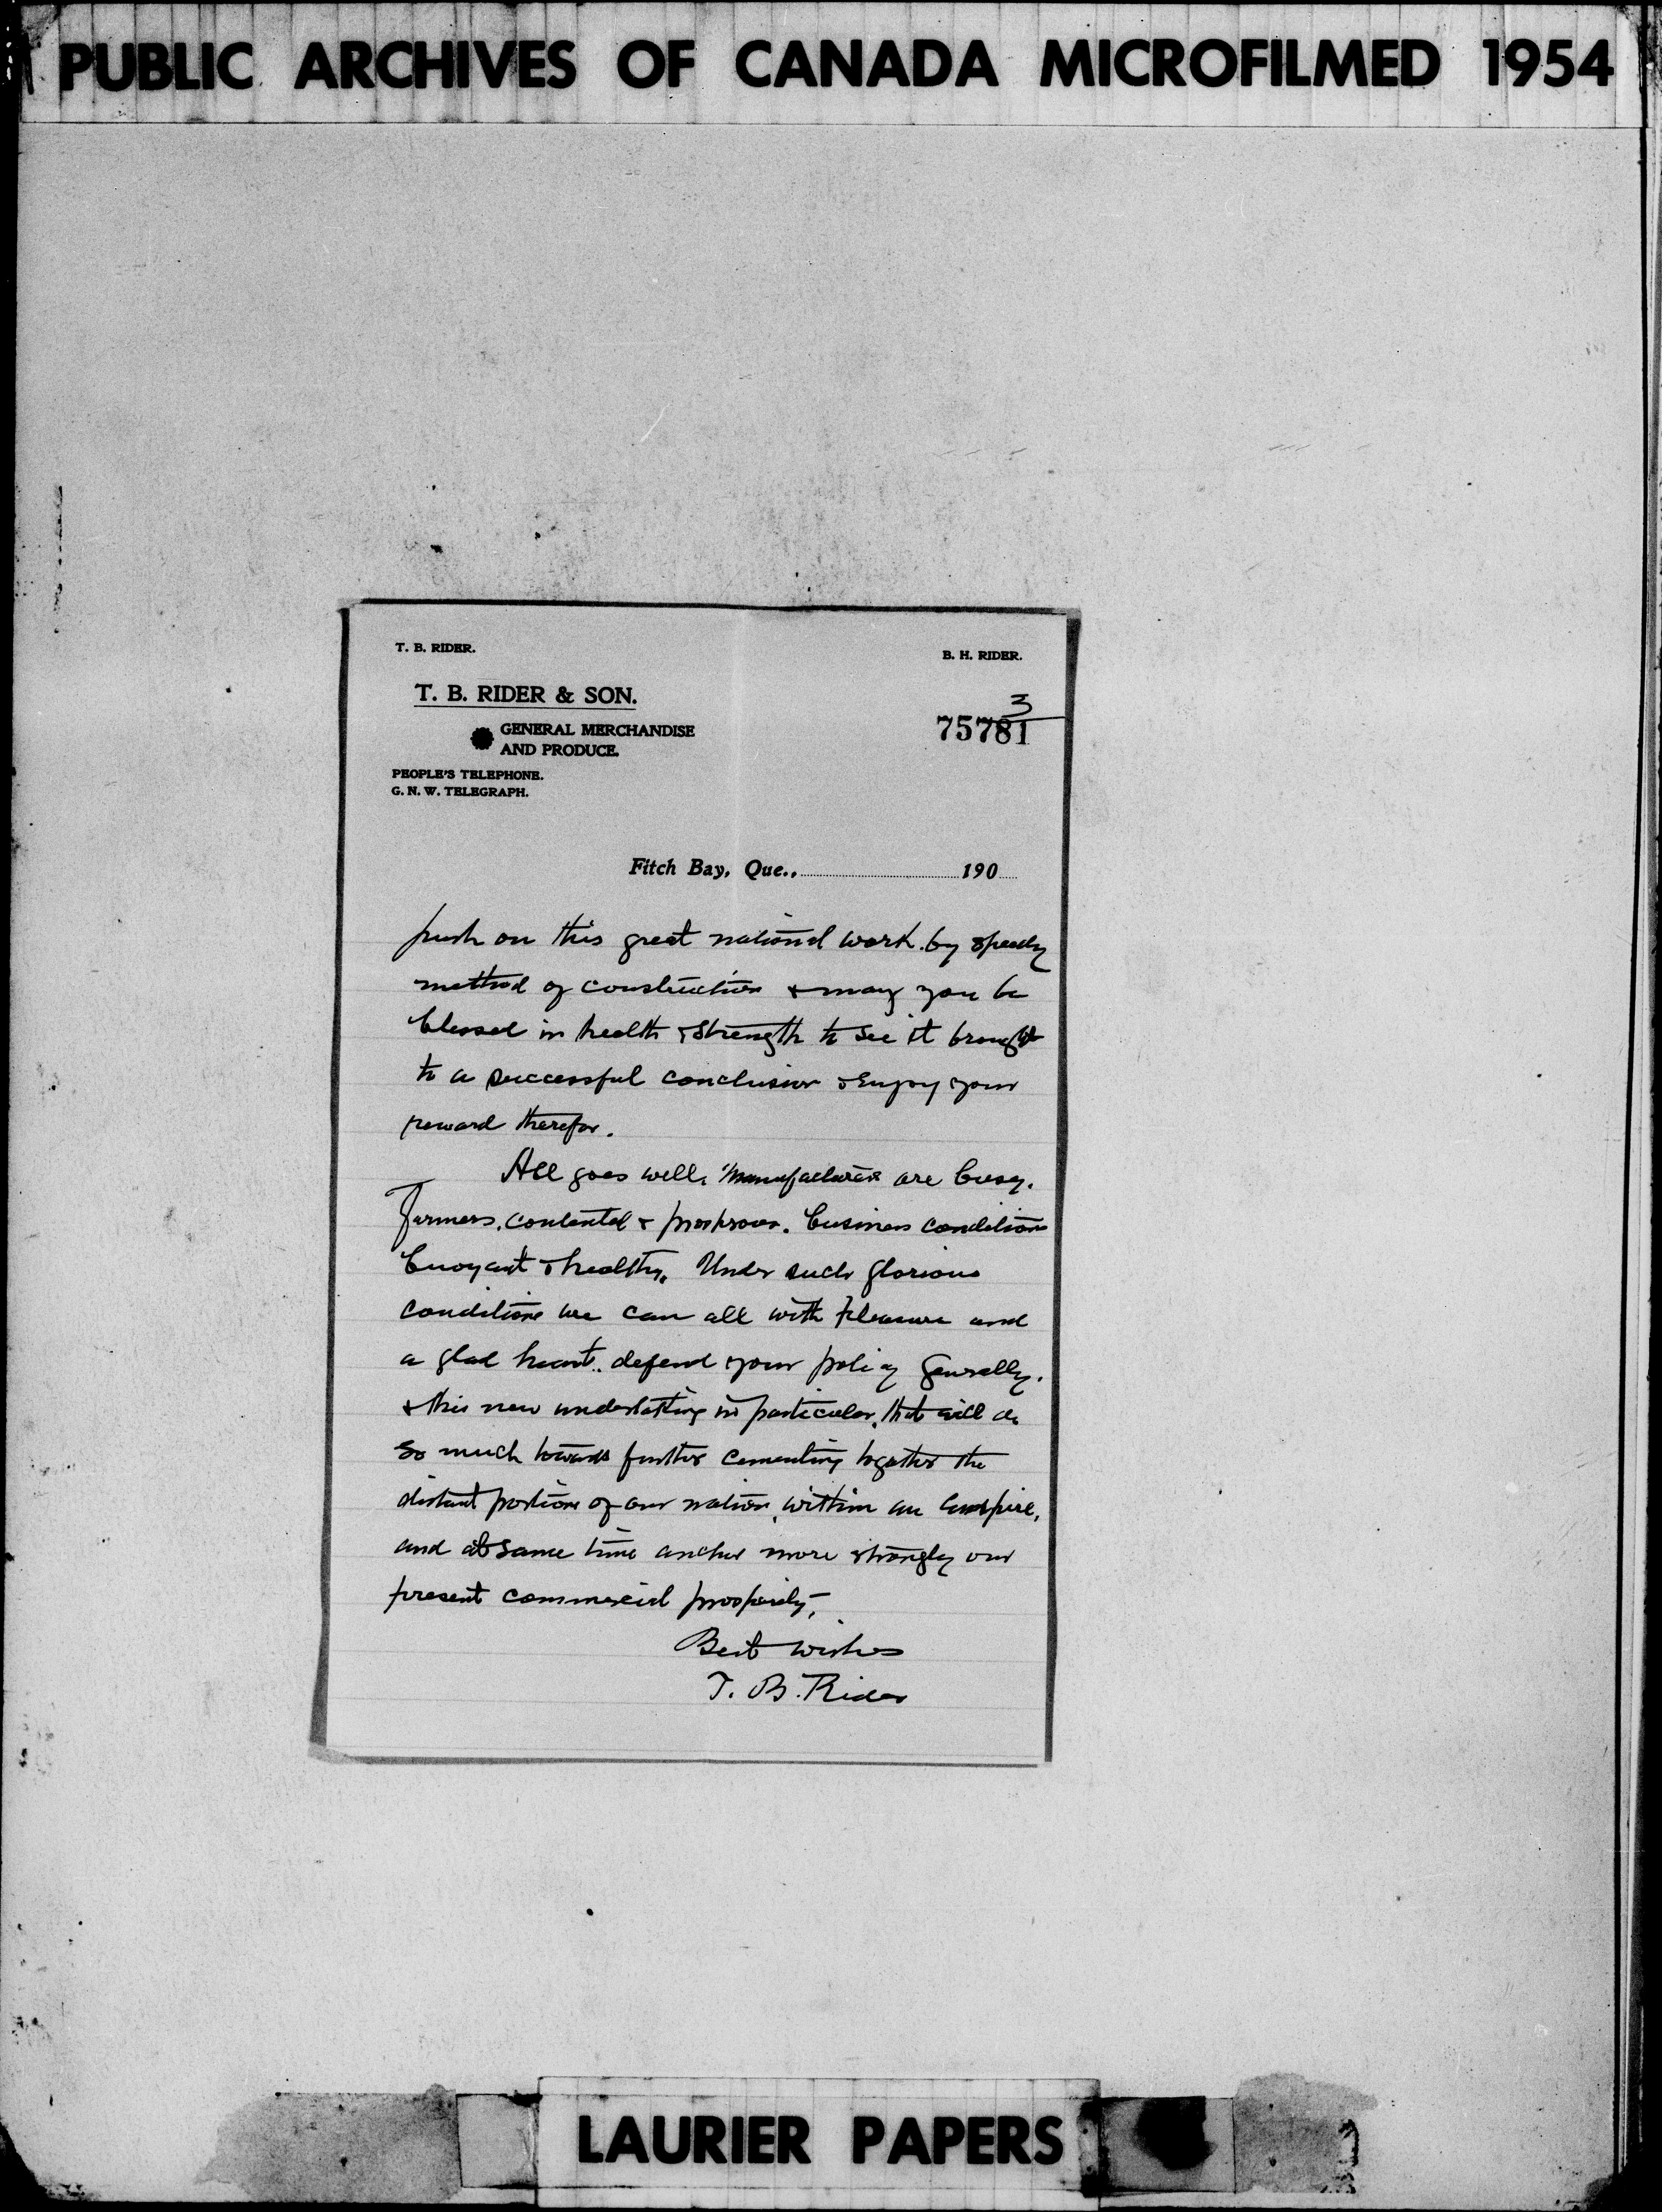 PUBLIC ARCHIVES OF CANADA MICROFILMED 1954
T. B. RIDER.
B. H. RIDER.
T. B. RIDER & SON.
GENERAL MERCHANDISE
AND PRODUCE.
PEOPLE'S TELEPHONE.
G. N. W. TELEGRAPH.
3
75781
Fitch Bay, Que., 190
push on this great national work by speedy
method of construction & may you be
blessed in health & strength to see it brought
to a successful conclusion & enjoy your
reward therefor.
All goes well. Manufacturers are busy.
Farmers, contented & prosperous. business conditions
buoyant & healthy. Under such glorious
conditions we can all with pleasure and
a glad heart.. defend your policy generally.
& this new undertaking in particular, that will do
so much towards further cementing together the
distant portions of our nation, within an Empire,
and at same time anchor more strongly our
present commercial prosperity,
Best wishes
T. B. Rider
LAURIER PAPERS